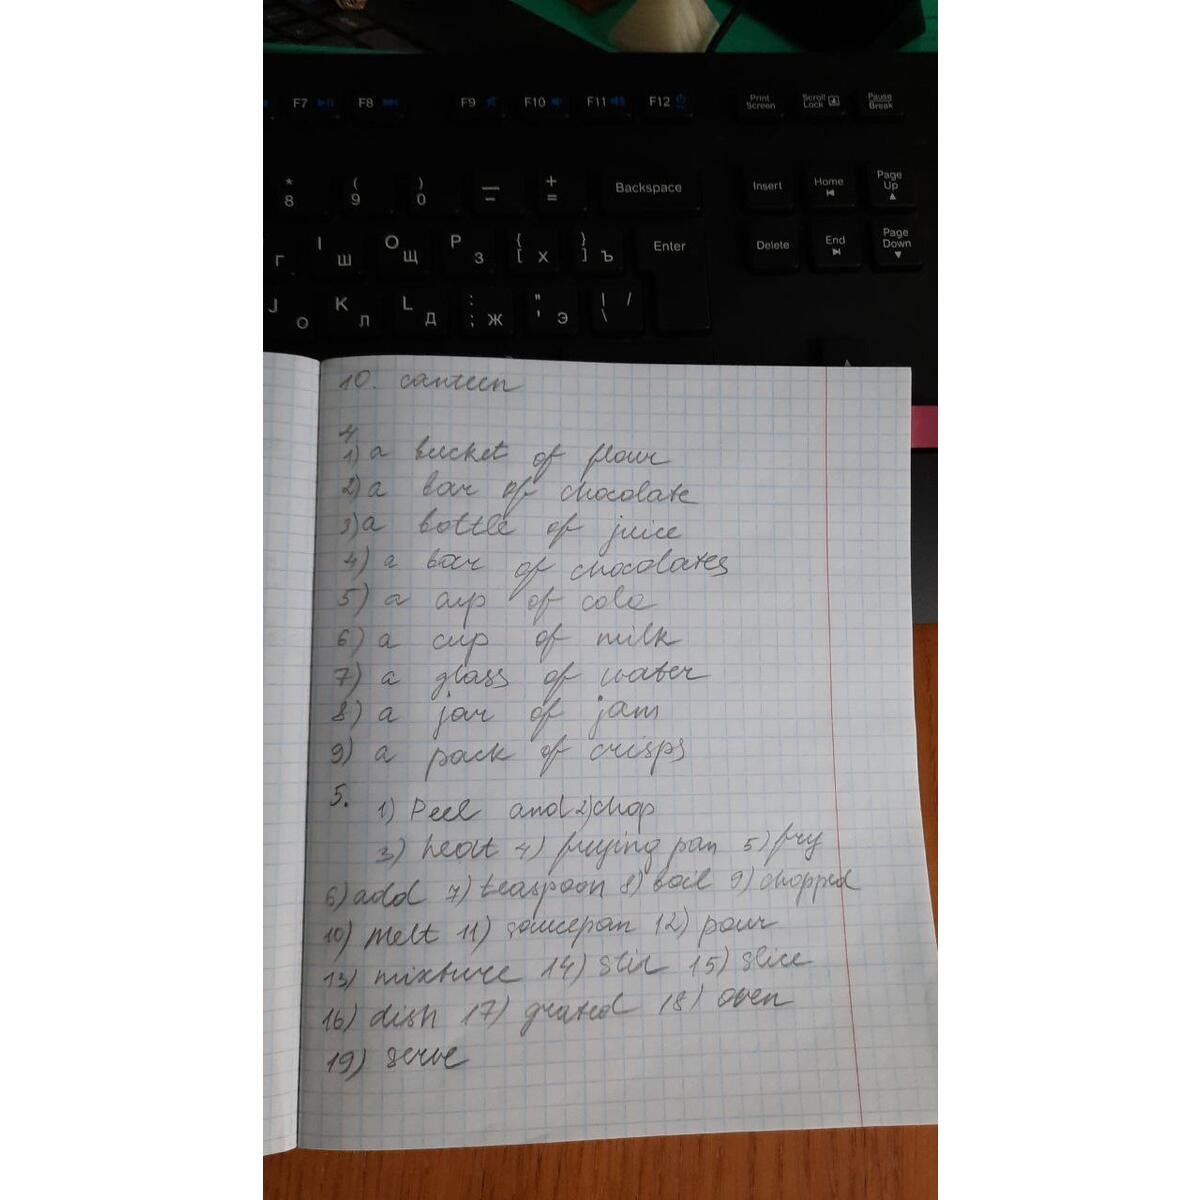 F7 F8 F9 F10 F11 F12 Print Screen Scroll Lock Pause Break
* 8 ( 9 ) 0 — - + = Backspace Insert Home Page Up
Г I Ш O Щ P З { [ Х } ] Ъ Enter Delete End Page Down
J О K Л L Д : ; Ж " ' Э | / \
10. canteen
4
1) a bucket of flour
2) a bar of chocolate
3) a bottle of juice
4) a bar of chocolates
5) a cup of cola
6) a cup of milk
7) a glass of water
8) a jar of jam
9) a pack of crisps
5.
1) Peel and 2) chop
3) heat 4) frying pan 5) fry
6) add 7) teaspoon 8) boil 9) chopped
10) melt 11) saucepan 12) pour
13) mixture 14) stir 15) slice
16) dish 17) grated 18) oven
19) serve